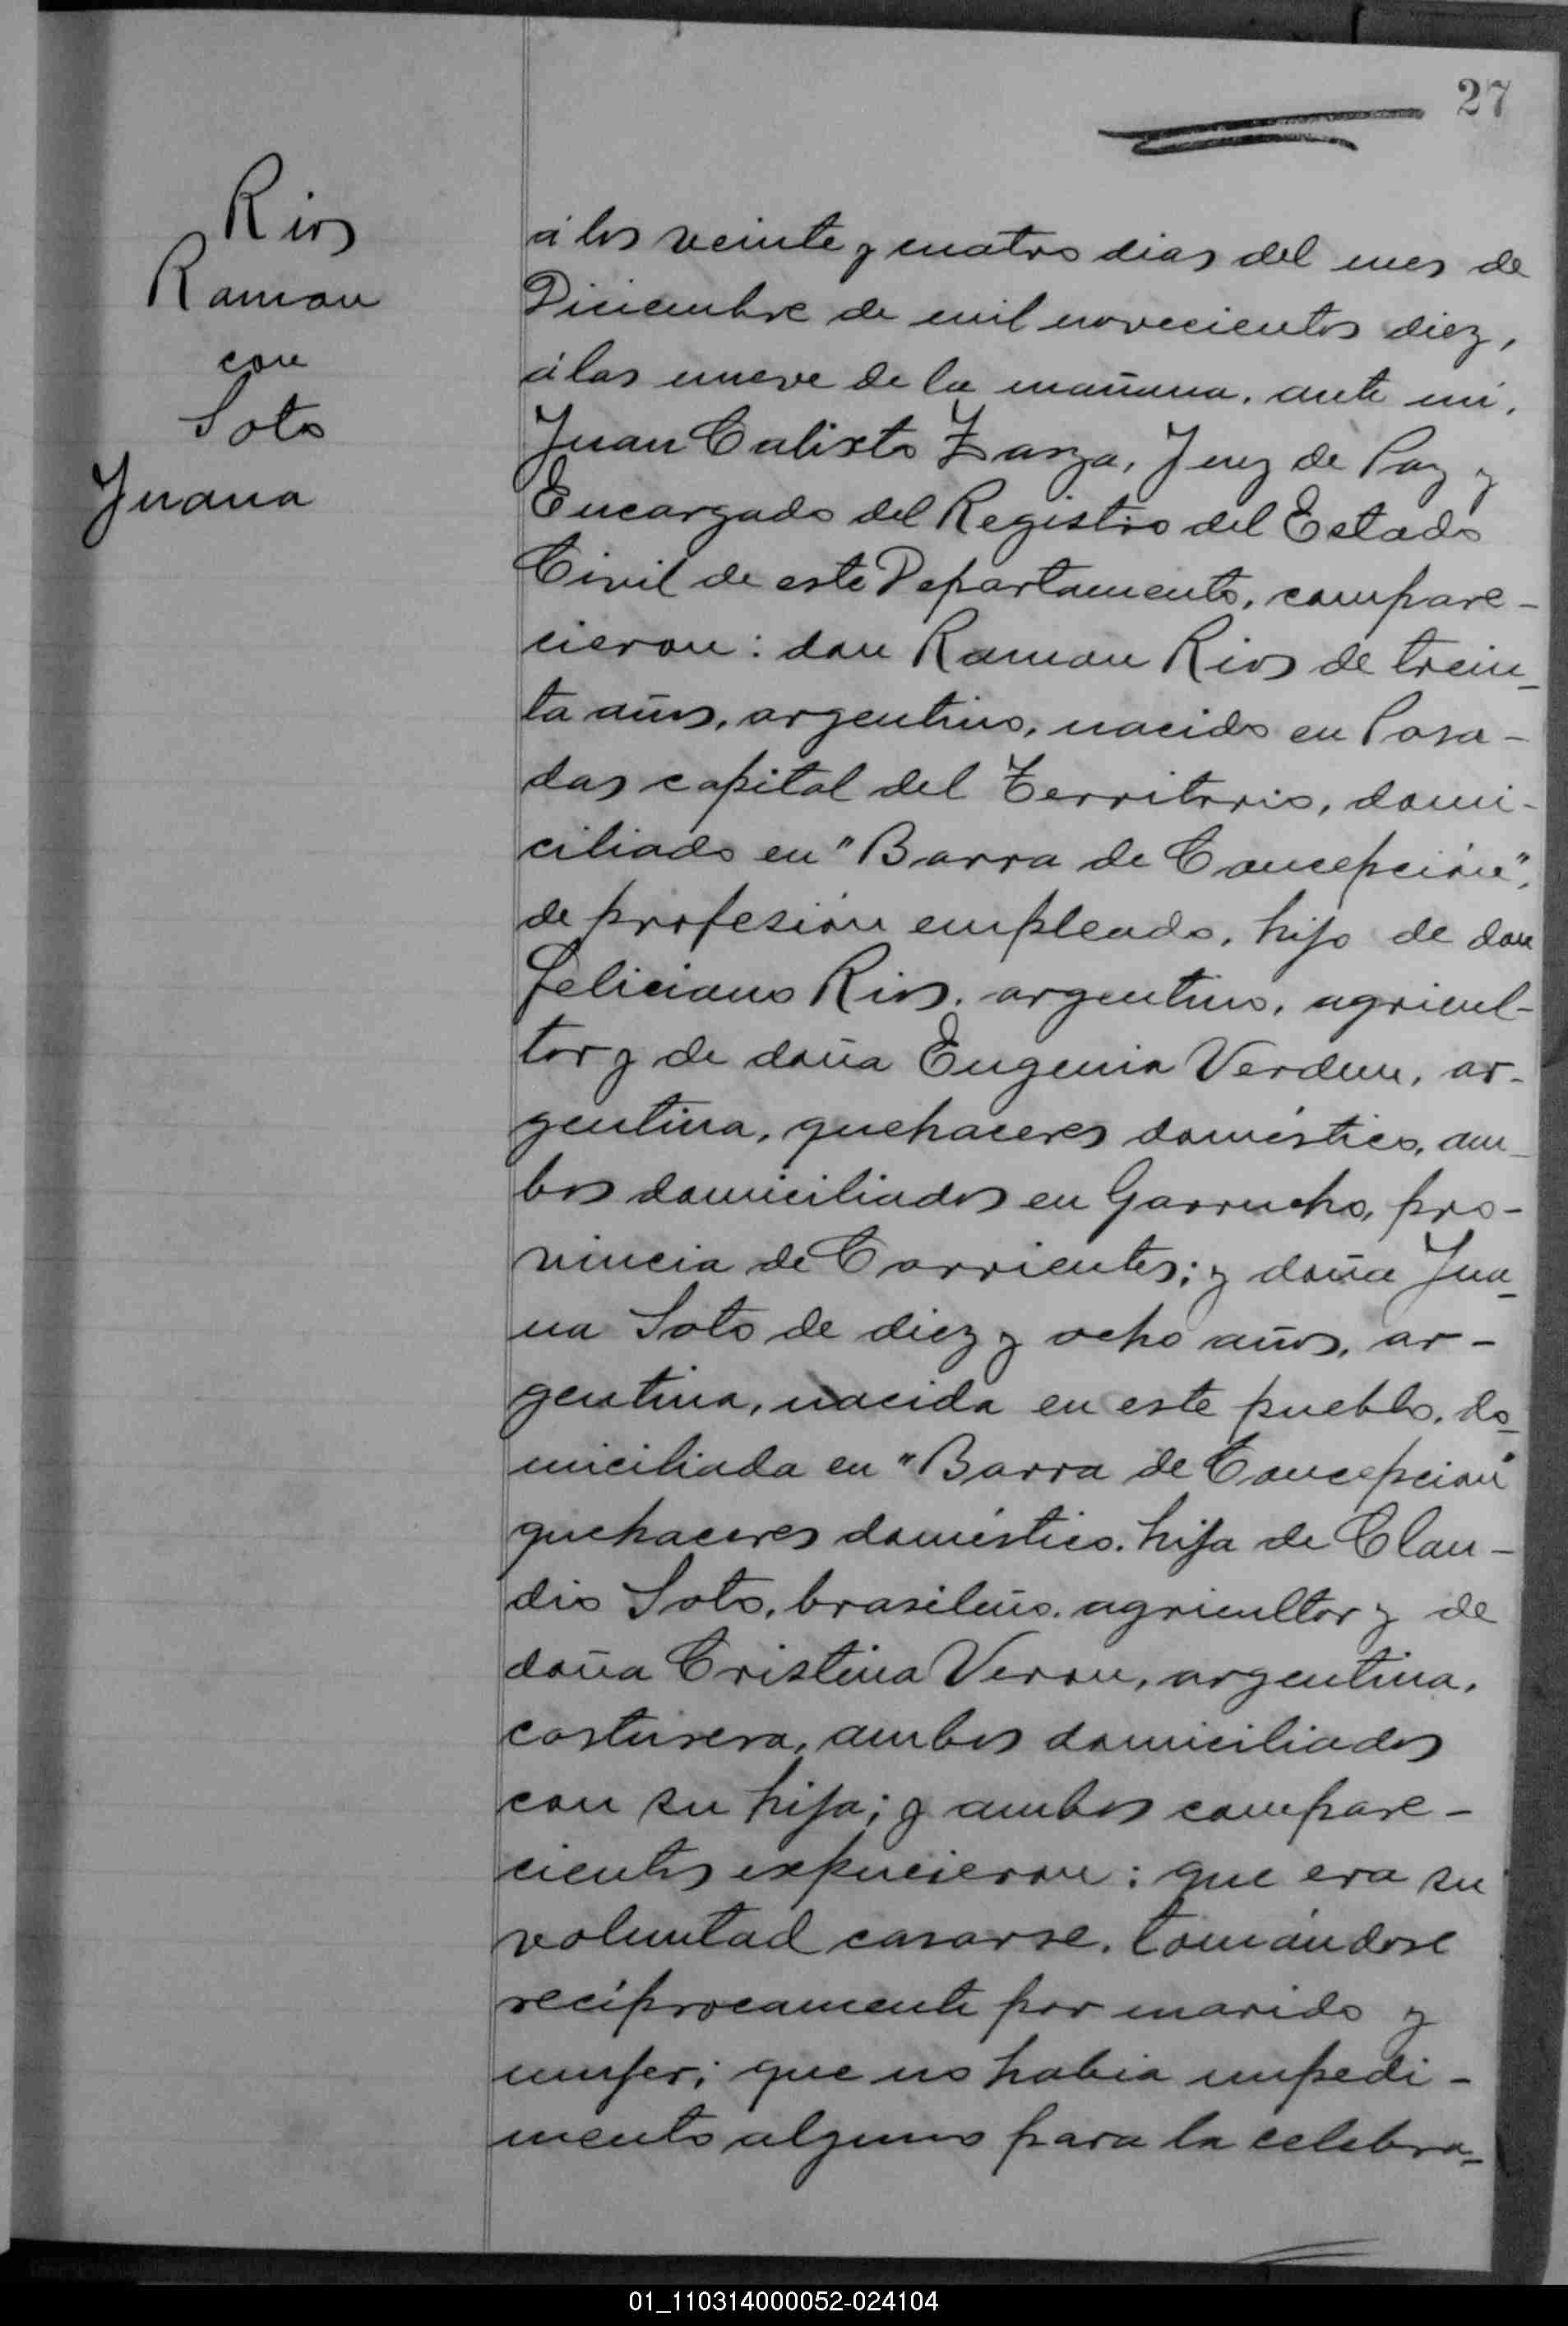 27
Rios
Ramon
con
Soto
Juana
á los veinte y cuatro dias del mes de
Diciembre de mil novecientos diez,
á las nueve de la mañana, ante mi,
Juan Calixto Zarza, Juez de Paz y
Encargado del Registro del Estado
Civil de este Departamento, compare-
cieron: don Ramon Rios de trein-
ta años, argentino, nacido en Posa-
das capital del Territorio, domi-
ciliado en "Barra de Concepción",
de profesión empleado, hijo de don
Feliciano Rios, argentino, agricul-
tor y de doña Eugenia Verdun, ar-
gentina, quehaceres doméstico, am-
bos domiciliados en Garruchos, pro-
vincia de Corrientes; y doña Jua-
na Soto de diez y ocho años, ar-
gentina, nacida en este pueblo, do-
miciliada en "Barra de Concepción"
quehaceres doméstico. hija de Clau-
dio Soto, brasileño, agricultor y de
doña Cristina Veron, argentina,
costurera, ambos domiciliados
con su hija; y ambos compare-
cientes expucieron: que era su
voluntad casarse, tomándose
recíprocamente por marido y
mujer; que no habia impedi-
mento alguno para la celebra-
01_110314000052-024104